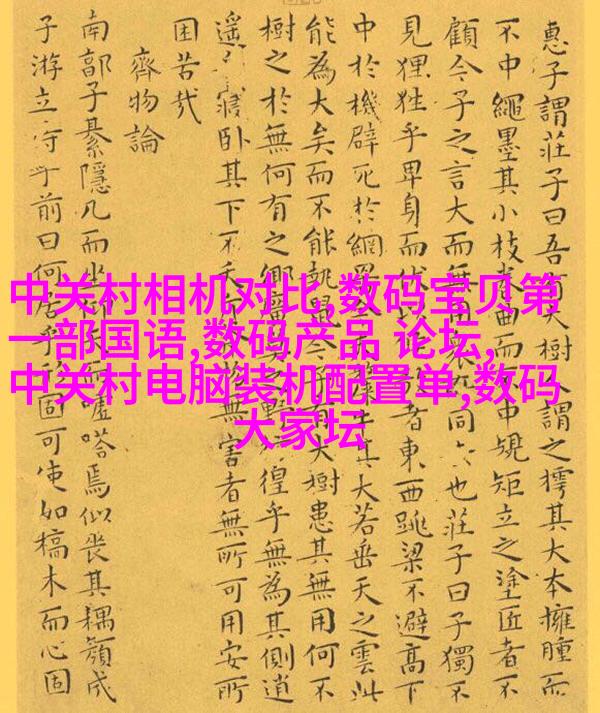 中关村相机对比,数码宝贝第
一部国语,数码产品 论坛,
中关村电脑装机配置单,数码
大家坛
惠子謂莊子曰吾有大樹人謂之樗其大本擁腫而
不中繩墨其小枝卷曲而不中規矩立之塗匠者不
顧今子之言大而無用衆所同去也莊子曰子獨不
見狸狌乎卑身而伏以候敖者東西跳梁不避高下
中於機辟死於網罟斄牛其大若垂天之雲此
能為大矣而不能執鼠今子有大樹患其無用何不
樹之於無何有之鄉廣莫之野彷徨乎無為其側逍
遙寢卧其下不夭斤斧物無害者無所可用安所
困苦哉
齊物論
南郭子綦隱几而坐仰天而噓嗒焉似喪其耦顏成
子游立侍乎前曰何居乎形固可使如槁木而心固